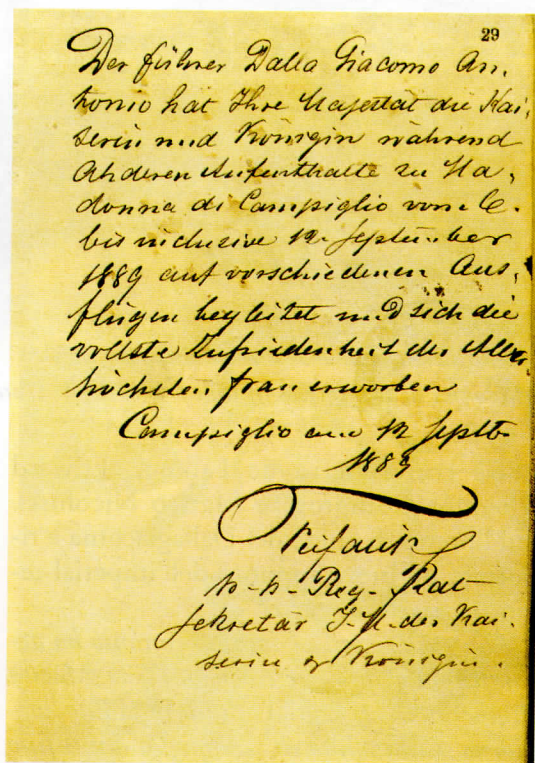 29
Der Führer Dalla Giacomo An,
tonio hat Ihre Majestät die Kai,
serin und Königin während
Ah deren Aufenthalte zu Ma,
donna di Campiglio vom 6.
bis inclusive 12. September
1889 auf verschiedenen Aus,
flügen begleitet und sich die
vollste Zufriedenheit der Aller,
höchsten Frau erworben
Campiglio am 12 Septb.
1889
k-k-Reg-Rat
Sekretär I. M. der Kai.
serin & Königin.